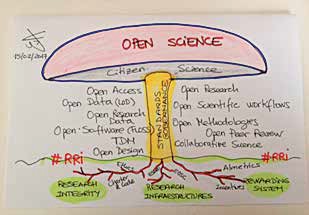 15/02/2017
OPEN SCIENCE
Citizen Science
Open Access
Open Data (LOD)
Open Research
Data
Open Software (FLOSS)
TDM
Open Design
STANDARDS
GOVERNANCE
Open Research
Open Scientific workflows
Open Methodologies
Open Peer Review
Collaborative Science
#RRi
#RRi
Ethics
Charter
& Code
RESEARCH
INTEGRITY
RESEARCH
INFRASTRUCTURES
Altmetrics
Incentives
REWARDING
SYSTEM